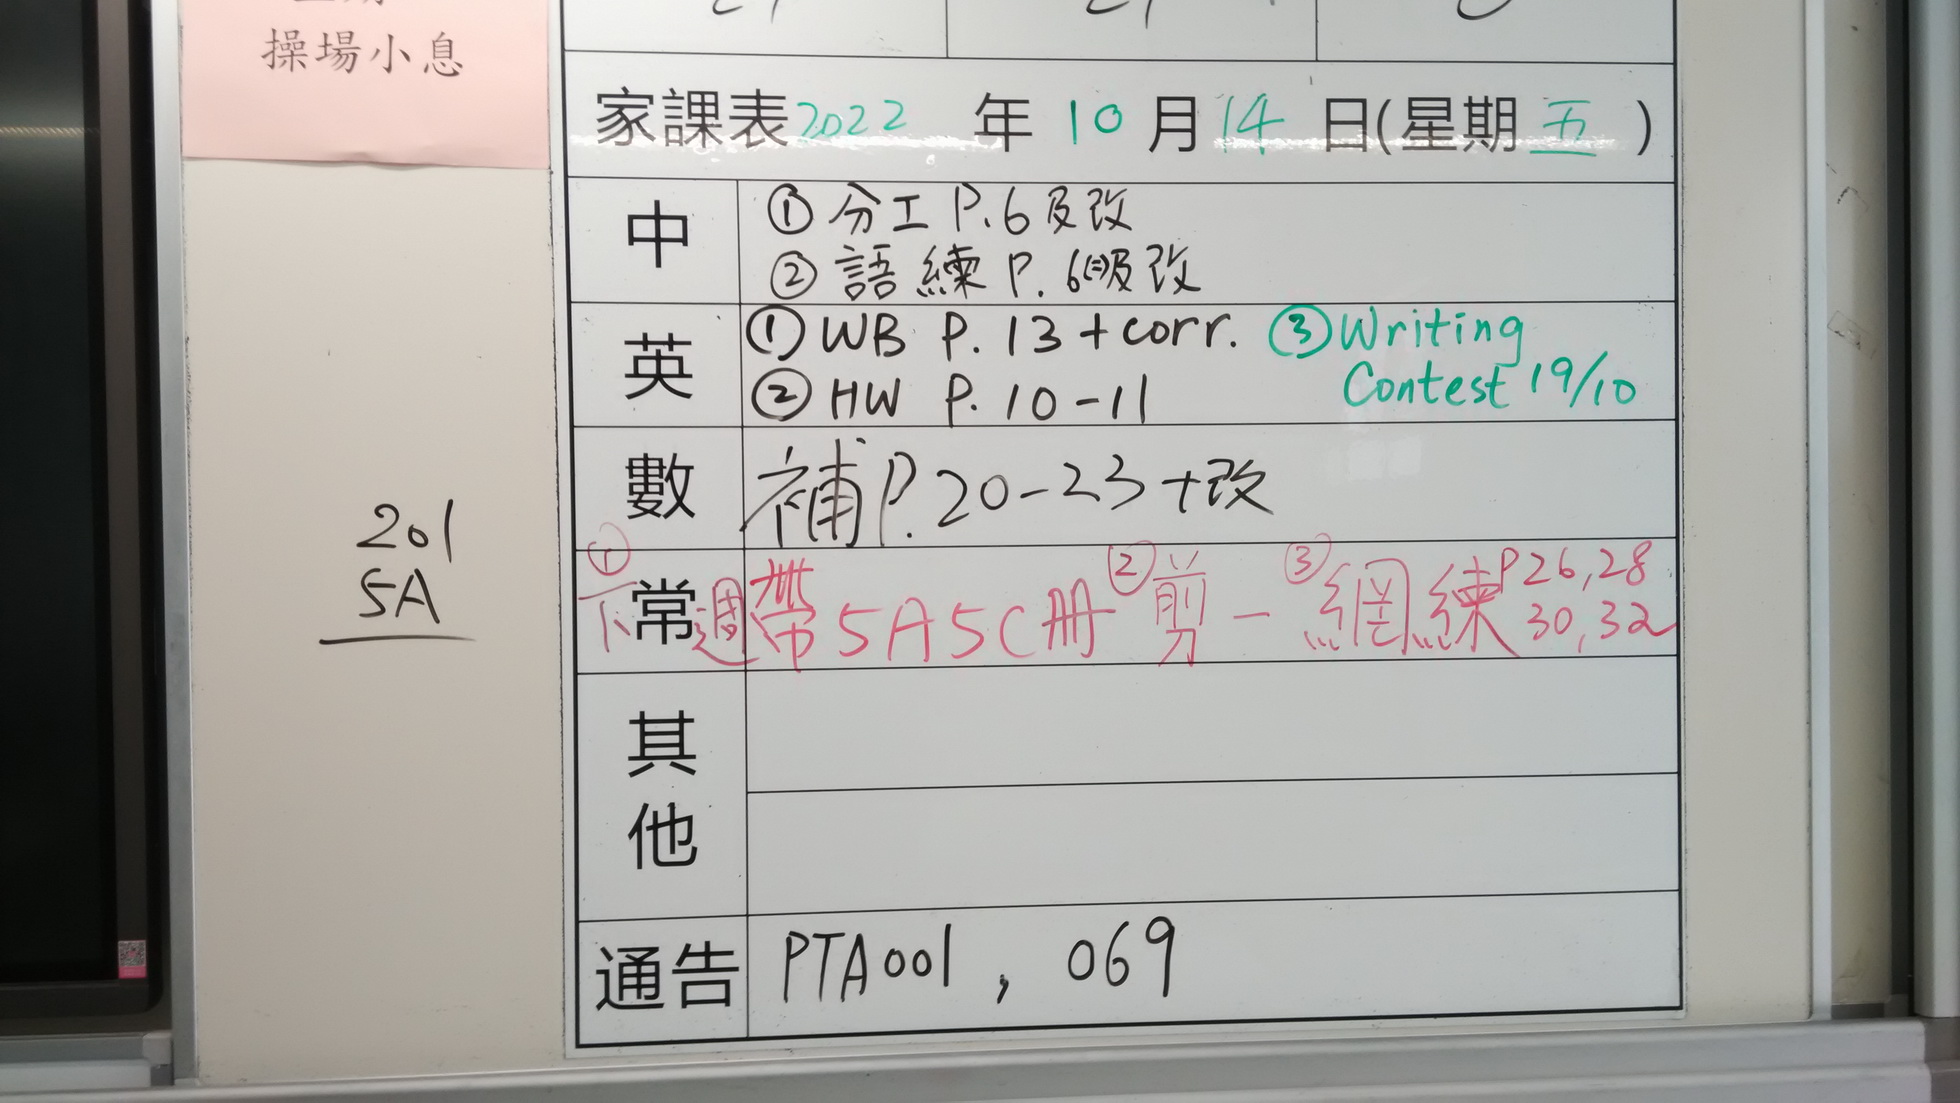 操場小息
家課表2022 年 10 月 14 日(星期 五 )
中
① 分工 P.6 及改
② 語練 P. 6(=)及改
英
① WB P. 13 + corr.
② HW P. 10-11
③ Writing
Contest 19/10
數
補 P. 20-23 + 改
常
① 下週帶 5A5C冊 ② 剪一 ③ 網練 P26,28
30,32
其他
通告
PTA001 , 069
201
5A